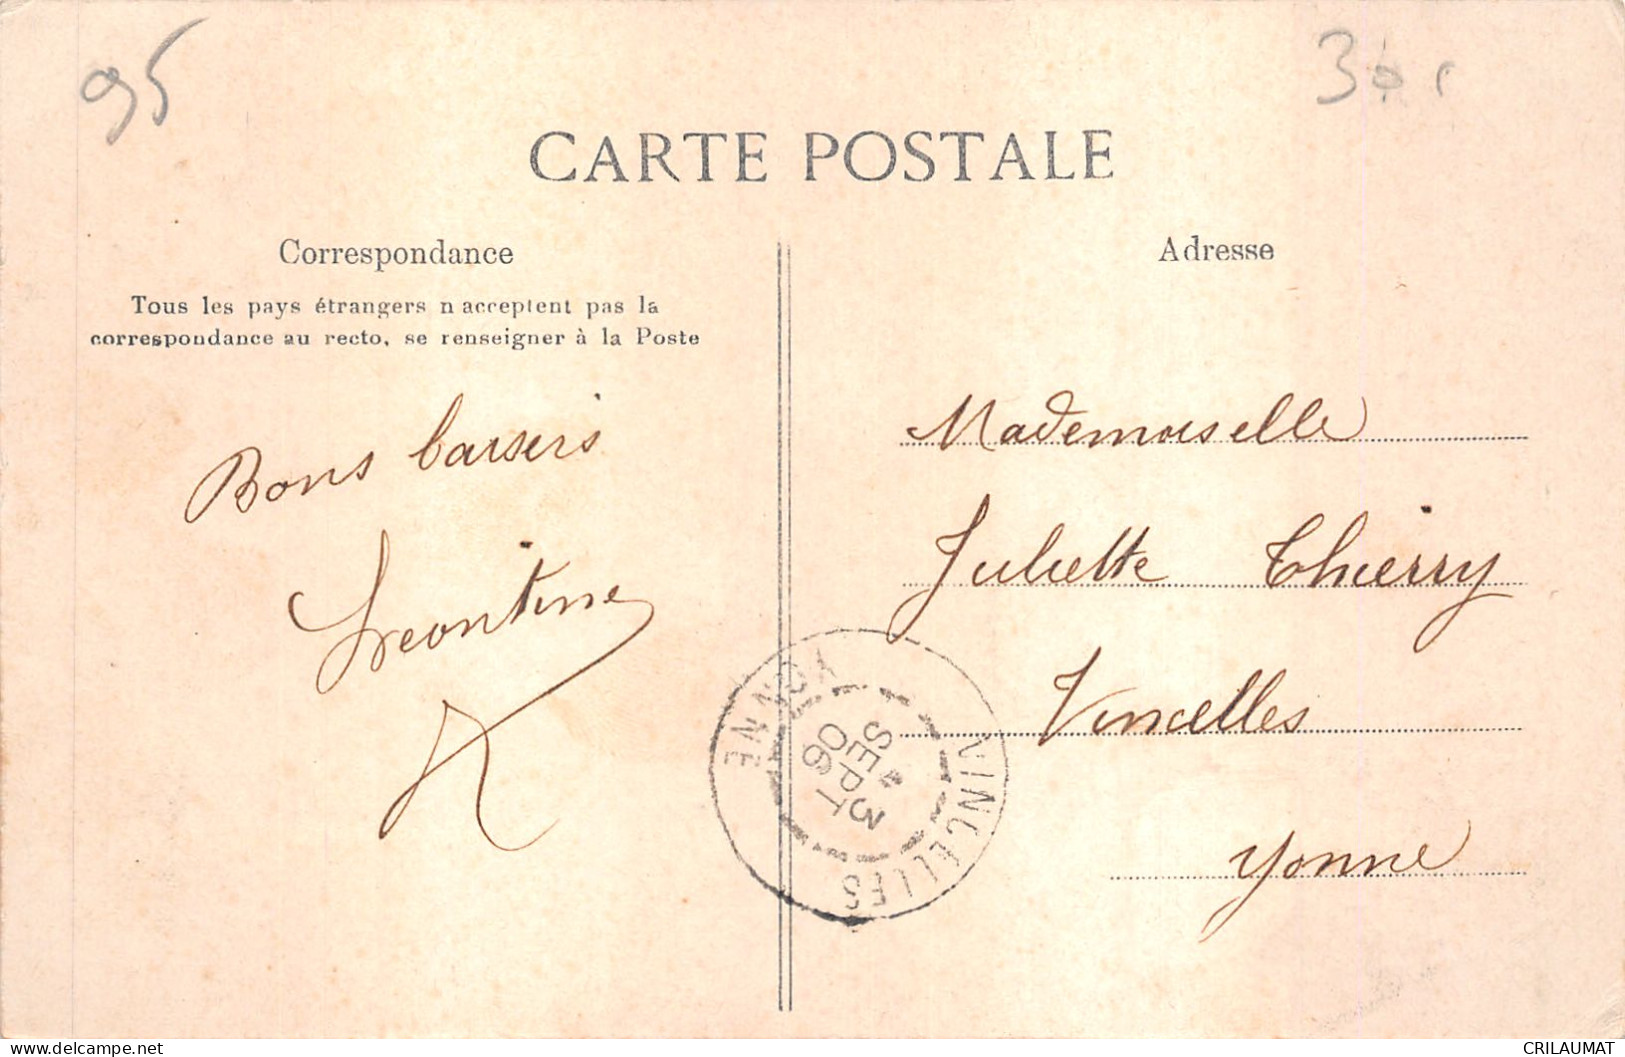 95
30
CARTE POSTALE
Correspondance
Tous les pays étrangers n acceptent pas la
correspondance au recto, se renseigner à la Poste
Bons baisers
Leontine
Adresse
Mademoiselle
Juliette Thierry
Vincelles
Yonne
VINCELLES
YONNE
3
SEPT
06
www.delcampe.net
CRILAUMAT